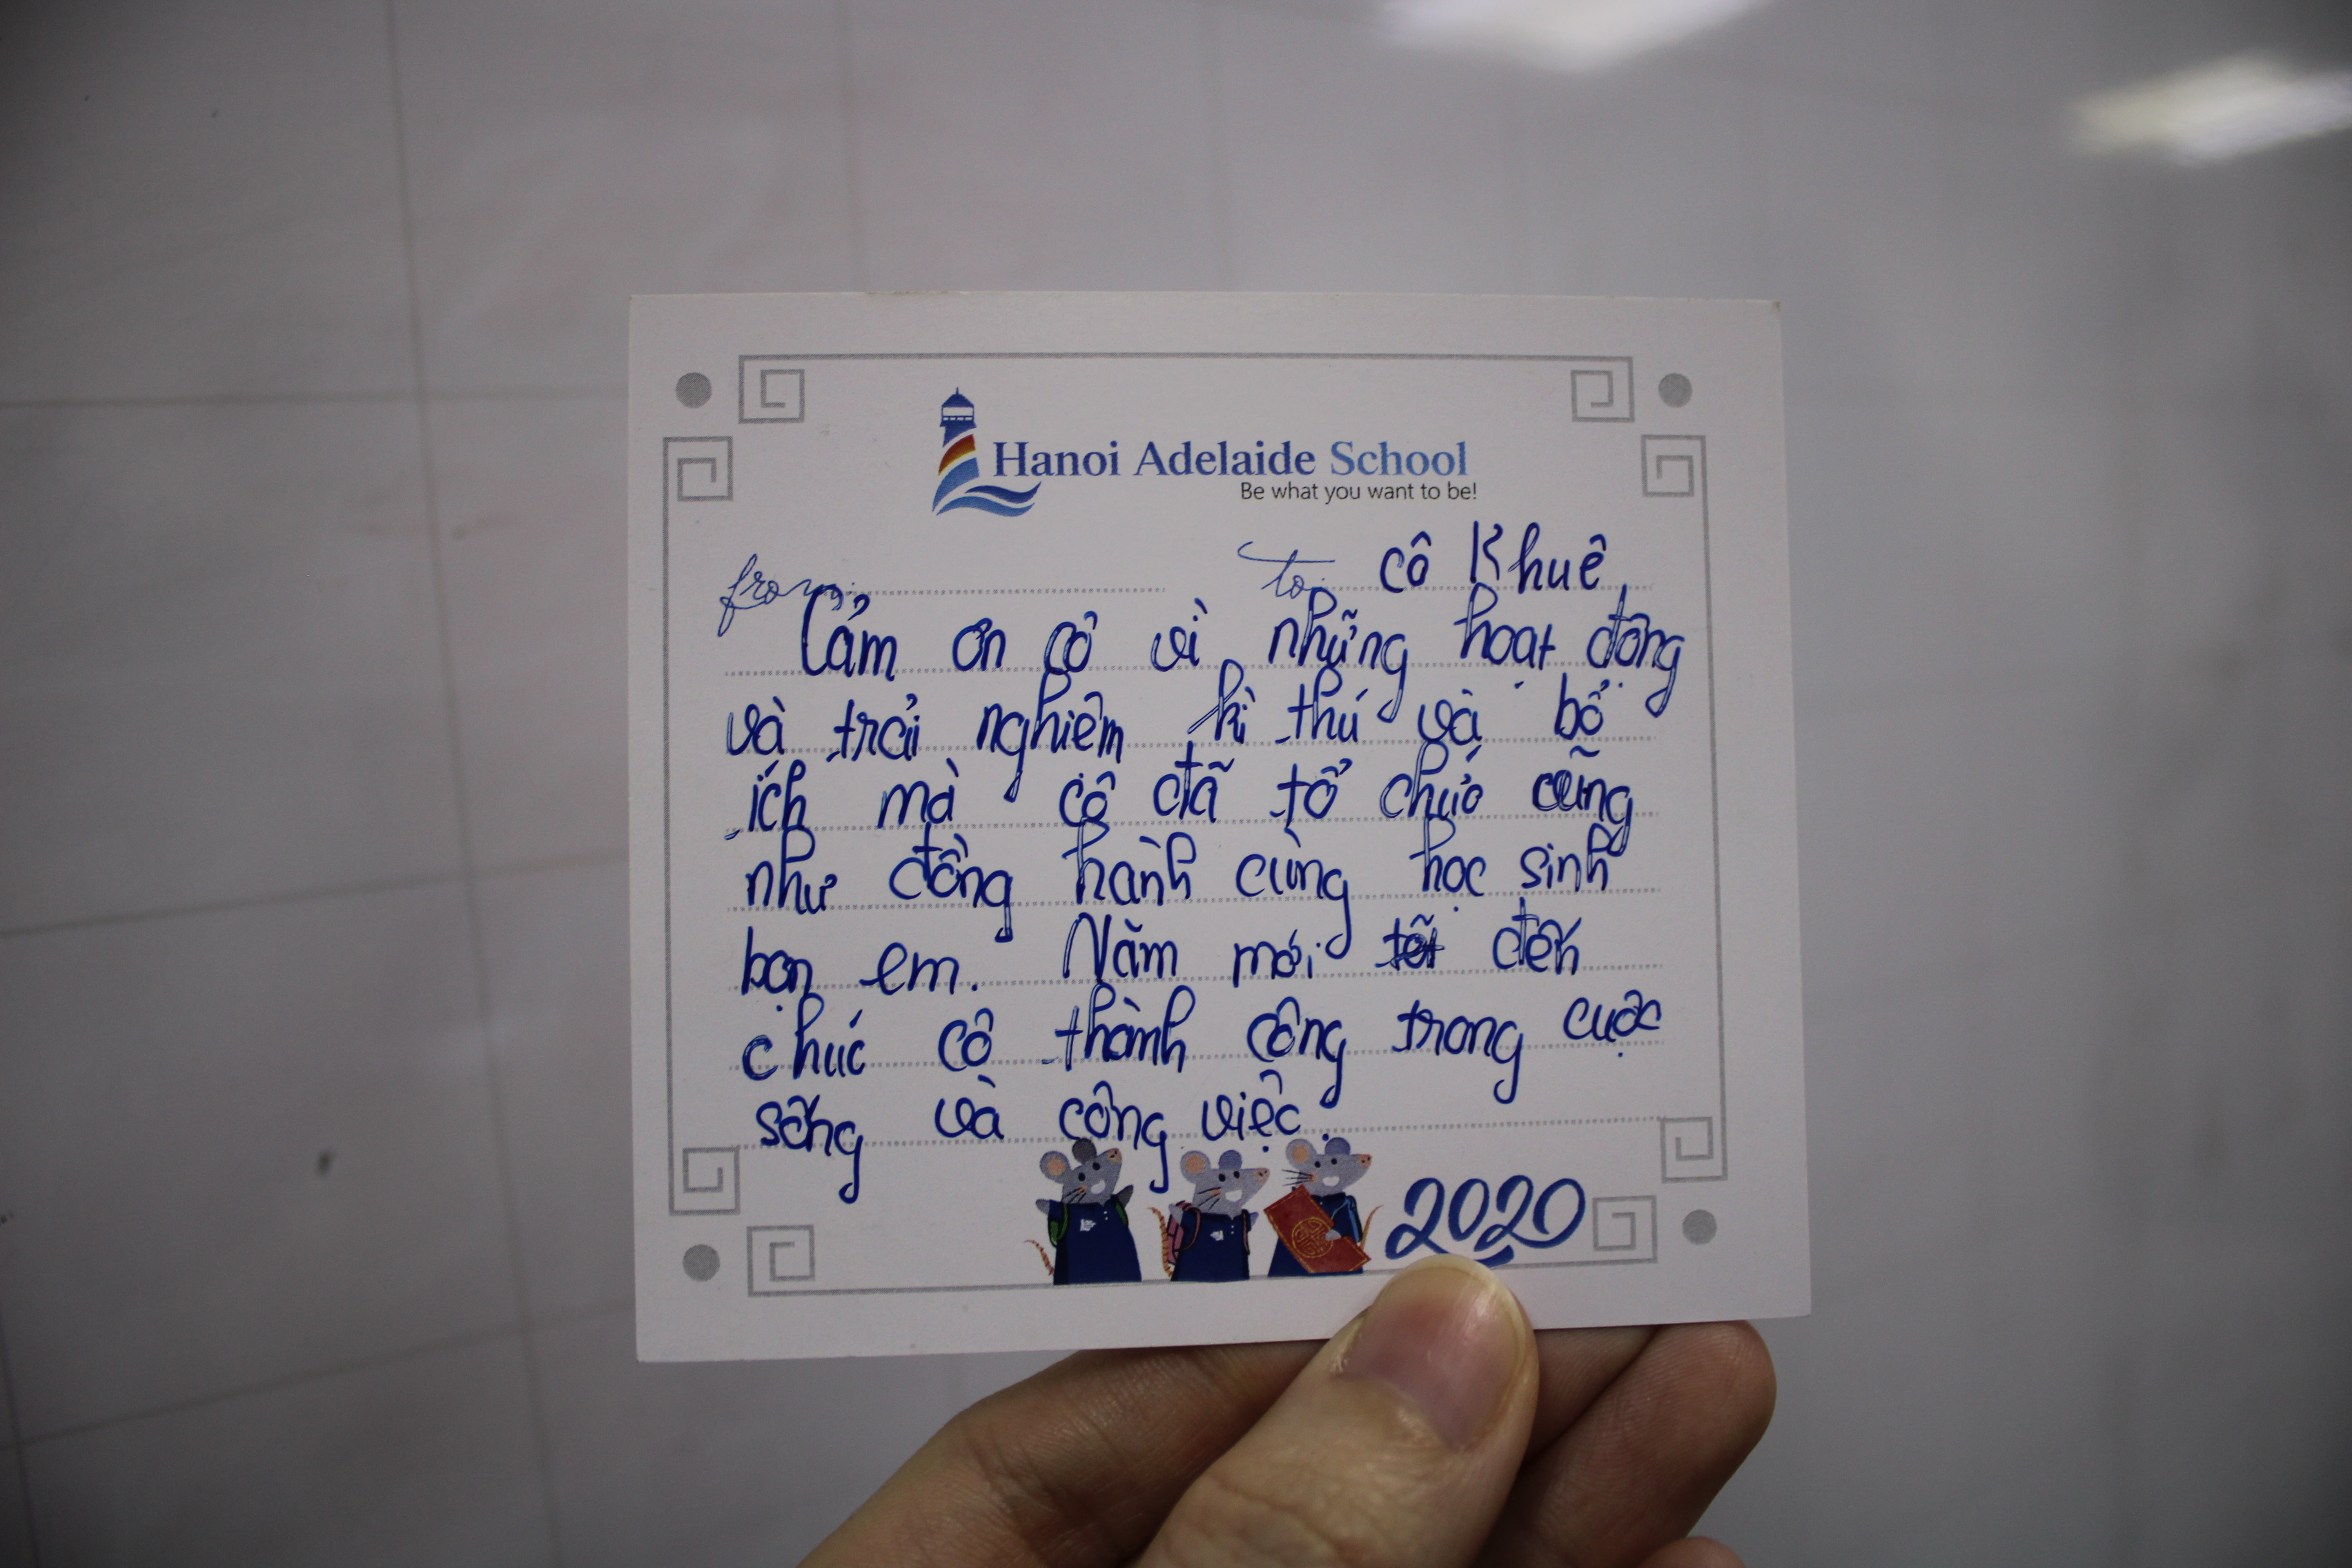 Hanoi Adelaide School
Be what you want to be!
from: to: cô Khuê
Cảm ơn cô vì những hoạt động
và trải nghiệm kì thú và bổ
ích mà cô đã tổ chức cũng
như đồng hành cùng học sinh
bọn em. Năm mới đến
chúc cô thành công trong cuộc
sống và công việc.
2020